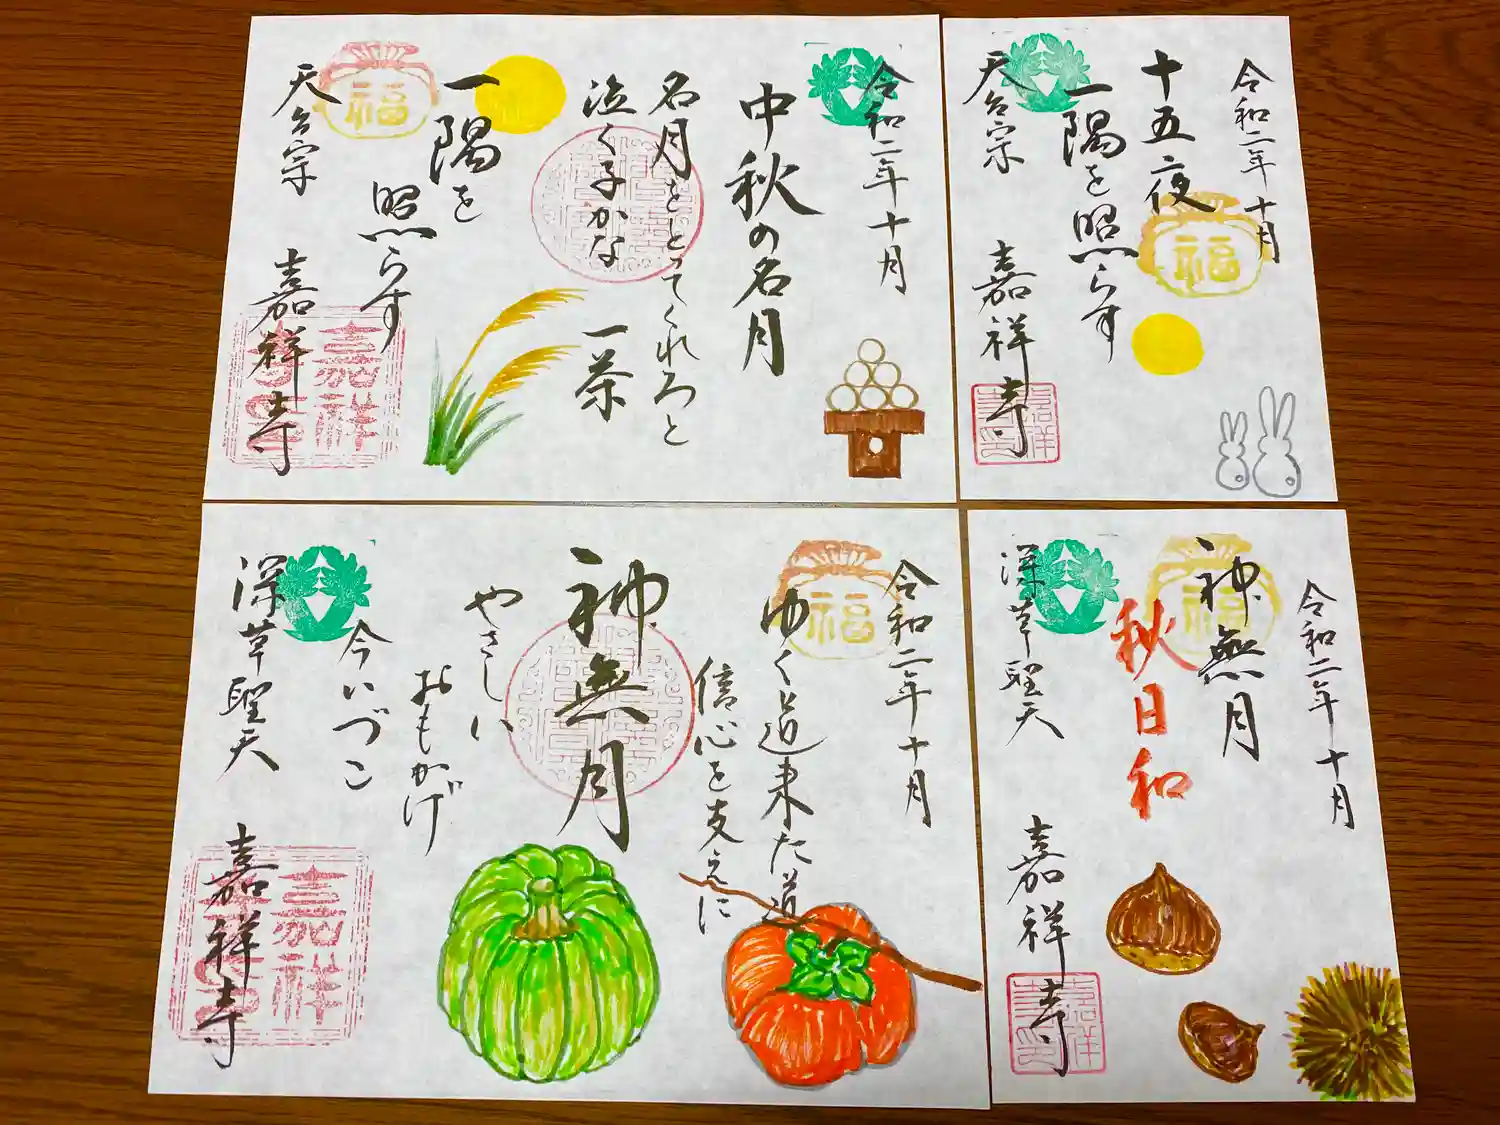 令和二年十月
中秋の名月
名月をとってくれろと
泣く子かな
一茶
一隅を
照らす
天台宗
嘉祥寺
福
嘉祥
令和二年十月
十五夜
一隅を照らす
天台宗
嘉祥寺
福
令和二年十月
ゆく道来た道
信心を支えに
神無月
やさしい
おもかげ
今いづこ
深草聖天
嘉祥寺
福
嘉祥
令和二年十月
神無月
秋日和
深草聖天
嘉祥寺
福